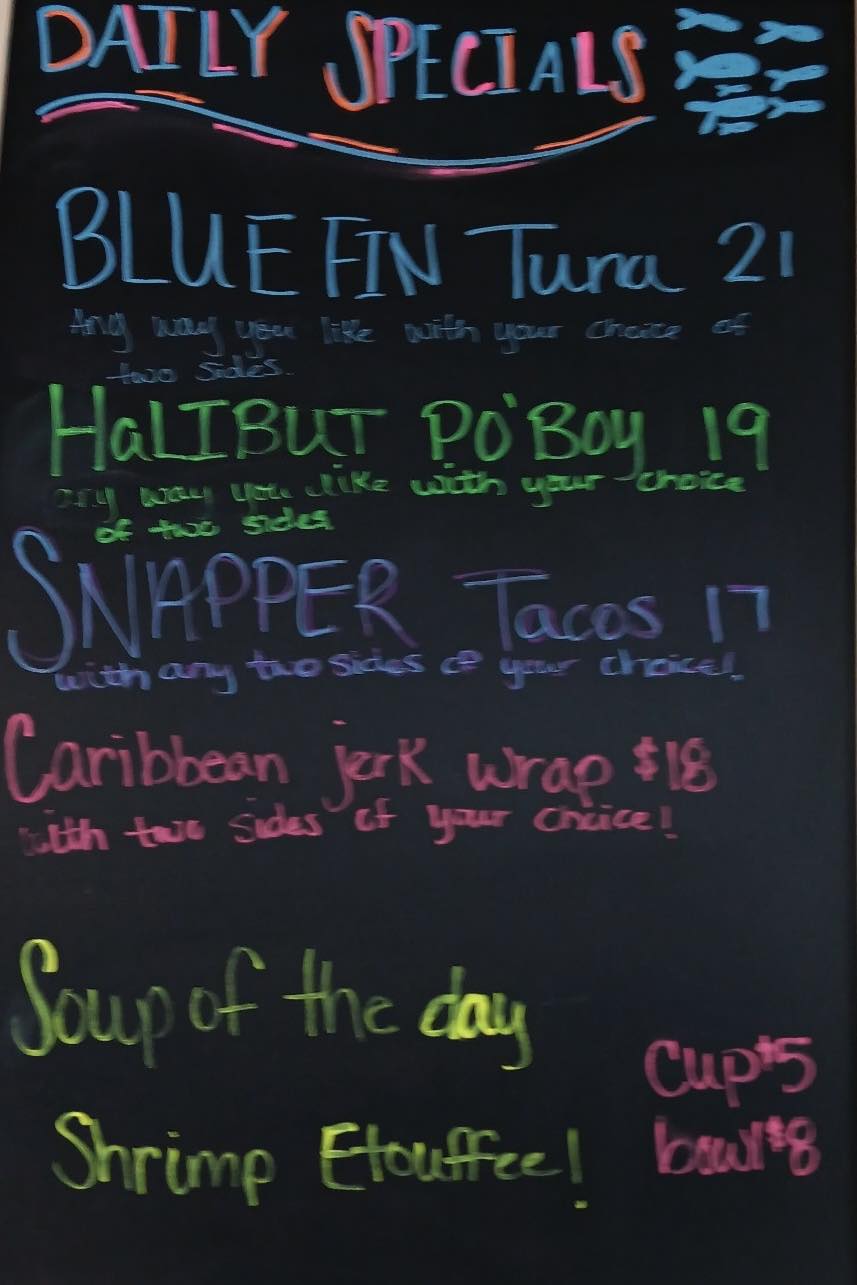 DAILY SPECIALS
BLUE FIN Tuna 21
Any way you like with your choice of
two sides.
HaLIBUT PO'BOY 19
any way you like with your choice
of two sides
SNAPPER Tacos 17
with any two sides of your choice!
Caribbean jerk wrap $18
with two sides of your choice!
Soup of the day
Cup $5
Shrimp Etouffee!
bowl $8